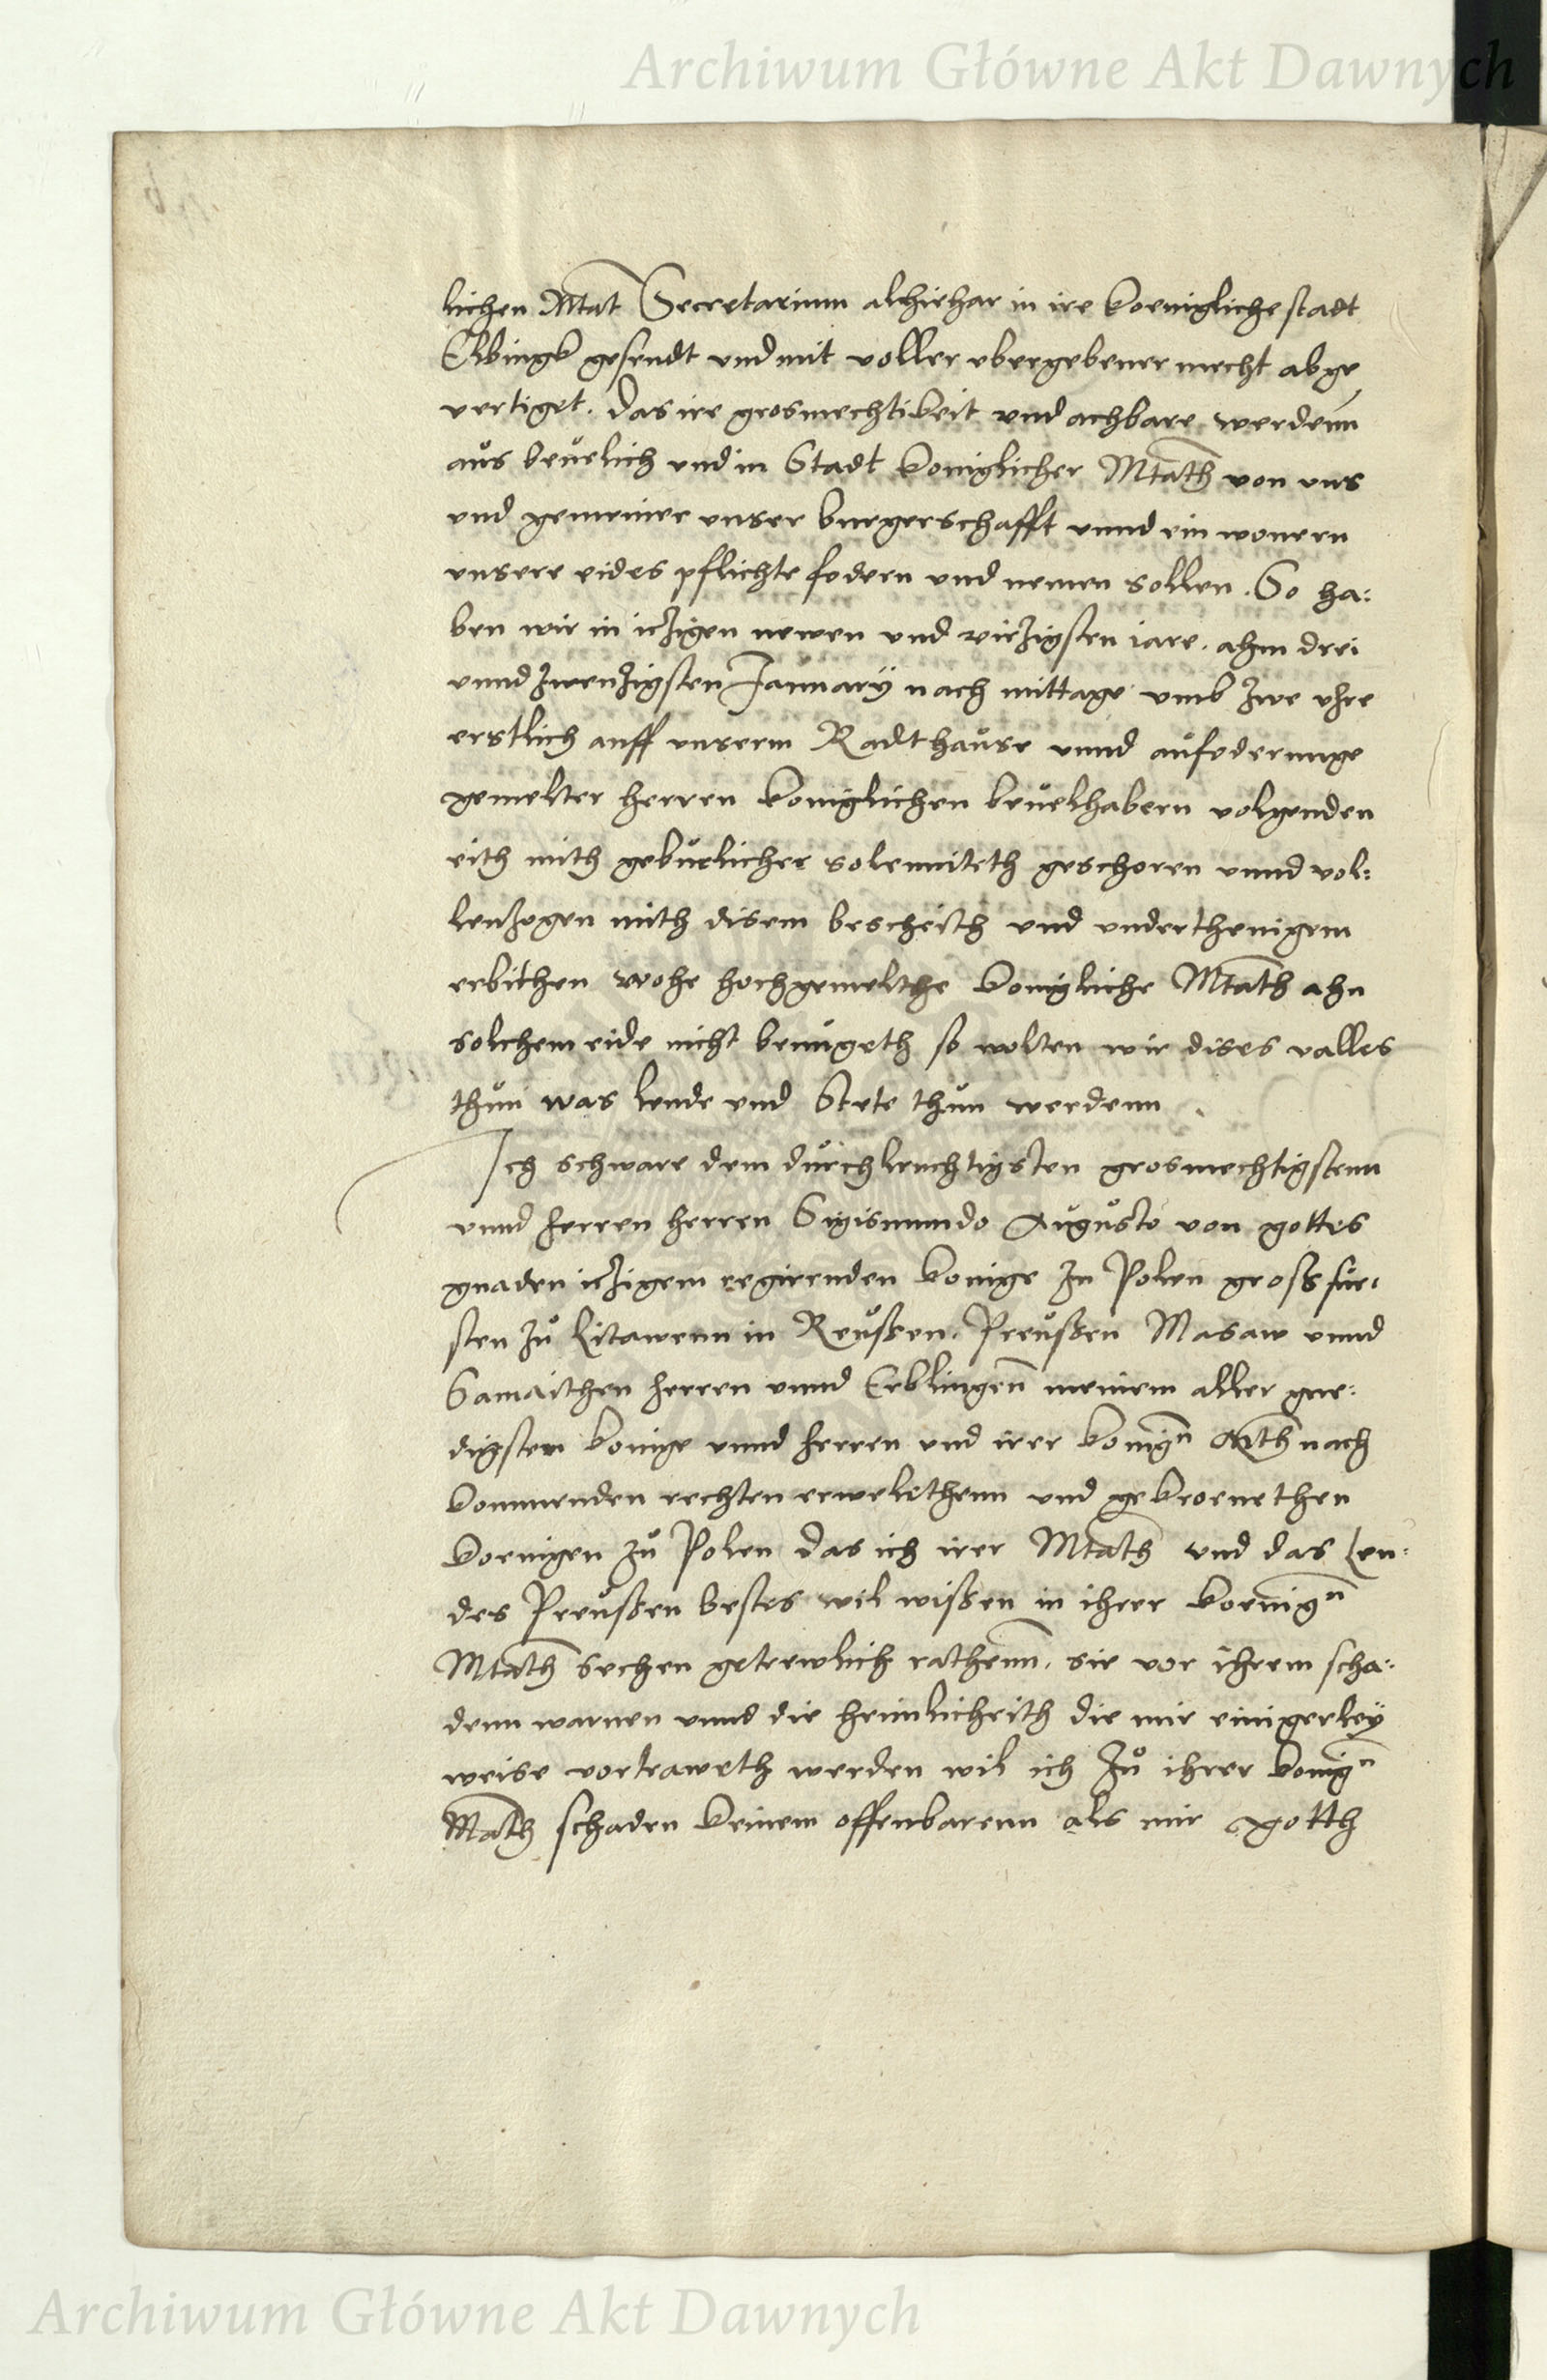 Archiwum Główne Akt Dawnych
lichen Mtat Secretarium alhirhar in ire koenigliche stadt
Elbingk gesendt und mit voller ubergebener mecht abge
vertiget. das ire grosmechtikeit und achbare werdenn
aus beuelich und in Stadt koniglicher Mtath von uns
und gemeiner unser burgerschafft unnd ein wonern
unsere eides pflichte fodern und nemen sollen. So ha:
ben wir in iczigen newen und virzigsten iare. ahm drei
unnd zwenzigsten January nach mittage umb zwe uhre
erstlich auff unserm Radthause unnd aufoderunge
gemelter herren koniglichen beuelhabern volgenden
eith mith geburlicher solenniteth geschoren unnd vol:
lenzogen mith disem bescheith und underthenigem
erbithen wohe hochgemelthe konigliche Mtath ahn
solchem eide nicht benugeth so wolten wir dises valles
thun was lende und Stete thun werdenn
Ich schware dem durchleuchtigsten grosmechtigstenn
unnd herren herren Sigismundo Augusto von gottes
gnaden iczigem regirenden konige In Polen grossfur:
sten zu Litawenn in Reußen. Preußen Masaw unnd
Samaithen herren unnd Erblingenn meinem aller gne:
digsten konige unnd herren und irer konign Mth nach
kommenden rechten erwelethenn und gekroenethen
koenigen zu Polen das ich irer Mtath und das Len:
des Preußen bestes wil wißen in ihrer koenign
Mtath sechen getrewlich rathenn. sie vor ihrem scha:
denn warnen unnd die heimlicheith die mir einigerley
weise vortraweth werden wil ich zu ihrer konign
Math schaden keinem offenbarenn als mir gotth
Archiwum Główne Akt Dawnych